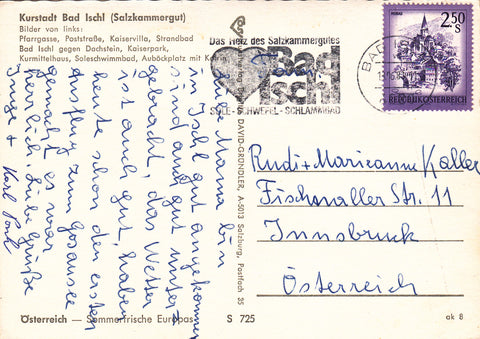 Kurstadt Bad Ischl (Salzkammergut)
Bilder von links:
Pfarrgasse, Poststraße, Kaiservilla, Strandbad
Bad Ischl gegen Dachstein, Kaiserpark,
Kurmittelhaus, Soleschwimmbad, Auböckplatz mit Katrin
Das Herz des Salzkammergutes
Bad
Ischl
SOLE - SCHWEFEL - SCHLAMMBAD
BAD
2.50
S
REPUBLIK ÖSTERREICH
Mama bin
in Ischl gut angekommen
sind auch gut unter-
gebracht, das Wetter
ist auch gut, haben
heute schon den ersten
Ausflug zum Gosausee
gemacht es war
herrlich. Liebe Grüße
Inge + Karl
DAVID-GRÜNDLER, A-5013 Salzburg, Postfach 35
Rudi + Marianne Kaller
Fischnaller Str. 11
Innsbruck
Österreich
Österreich — Sommerfrische Europas
S 725
ak 8